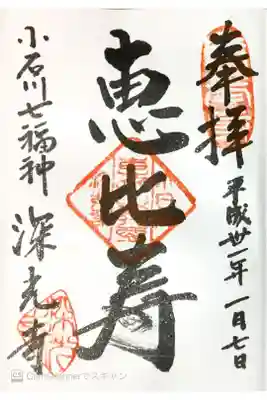 奉拝
平成丗一年一月七日
恵比寿
小石川七福神
深光寺
CamScannerでスキャン